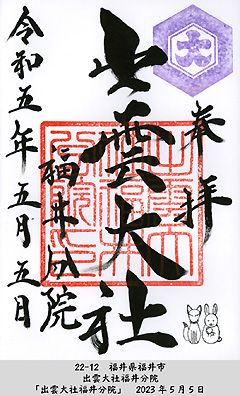 奉拝
出雲大社
福井分院
令和五年五月五日
22-12 福井県福井市
出雲大社福井分院
「出雲大社福井分院」 2023年5月5日